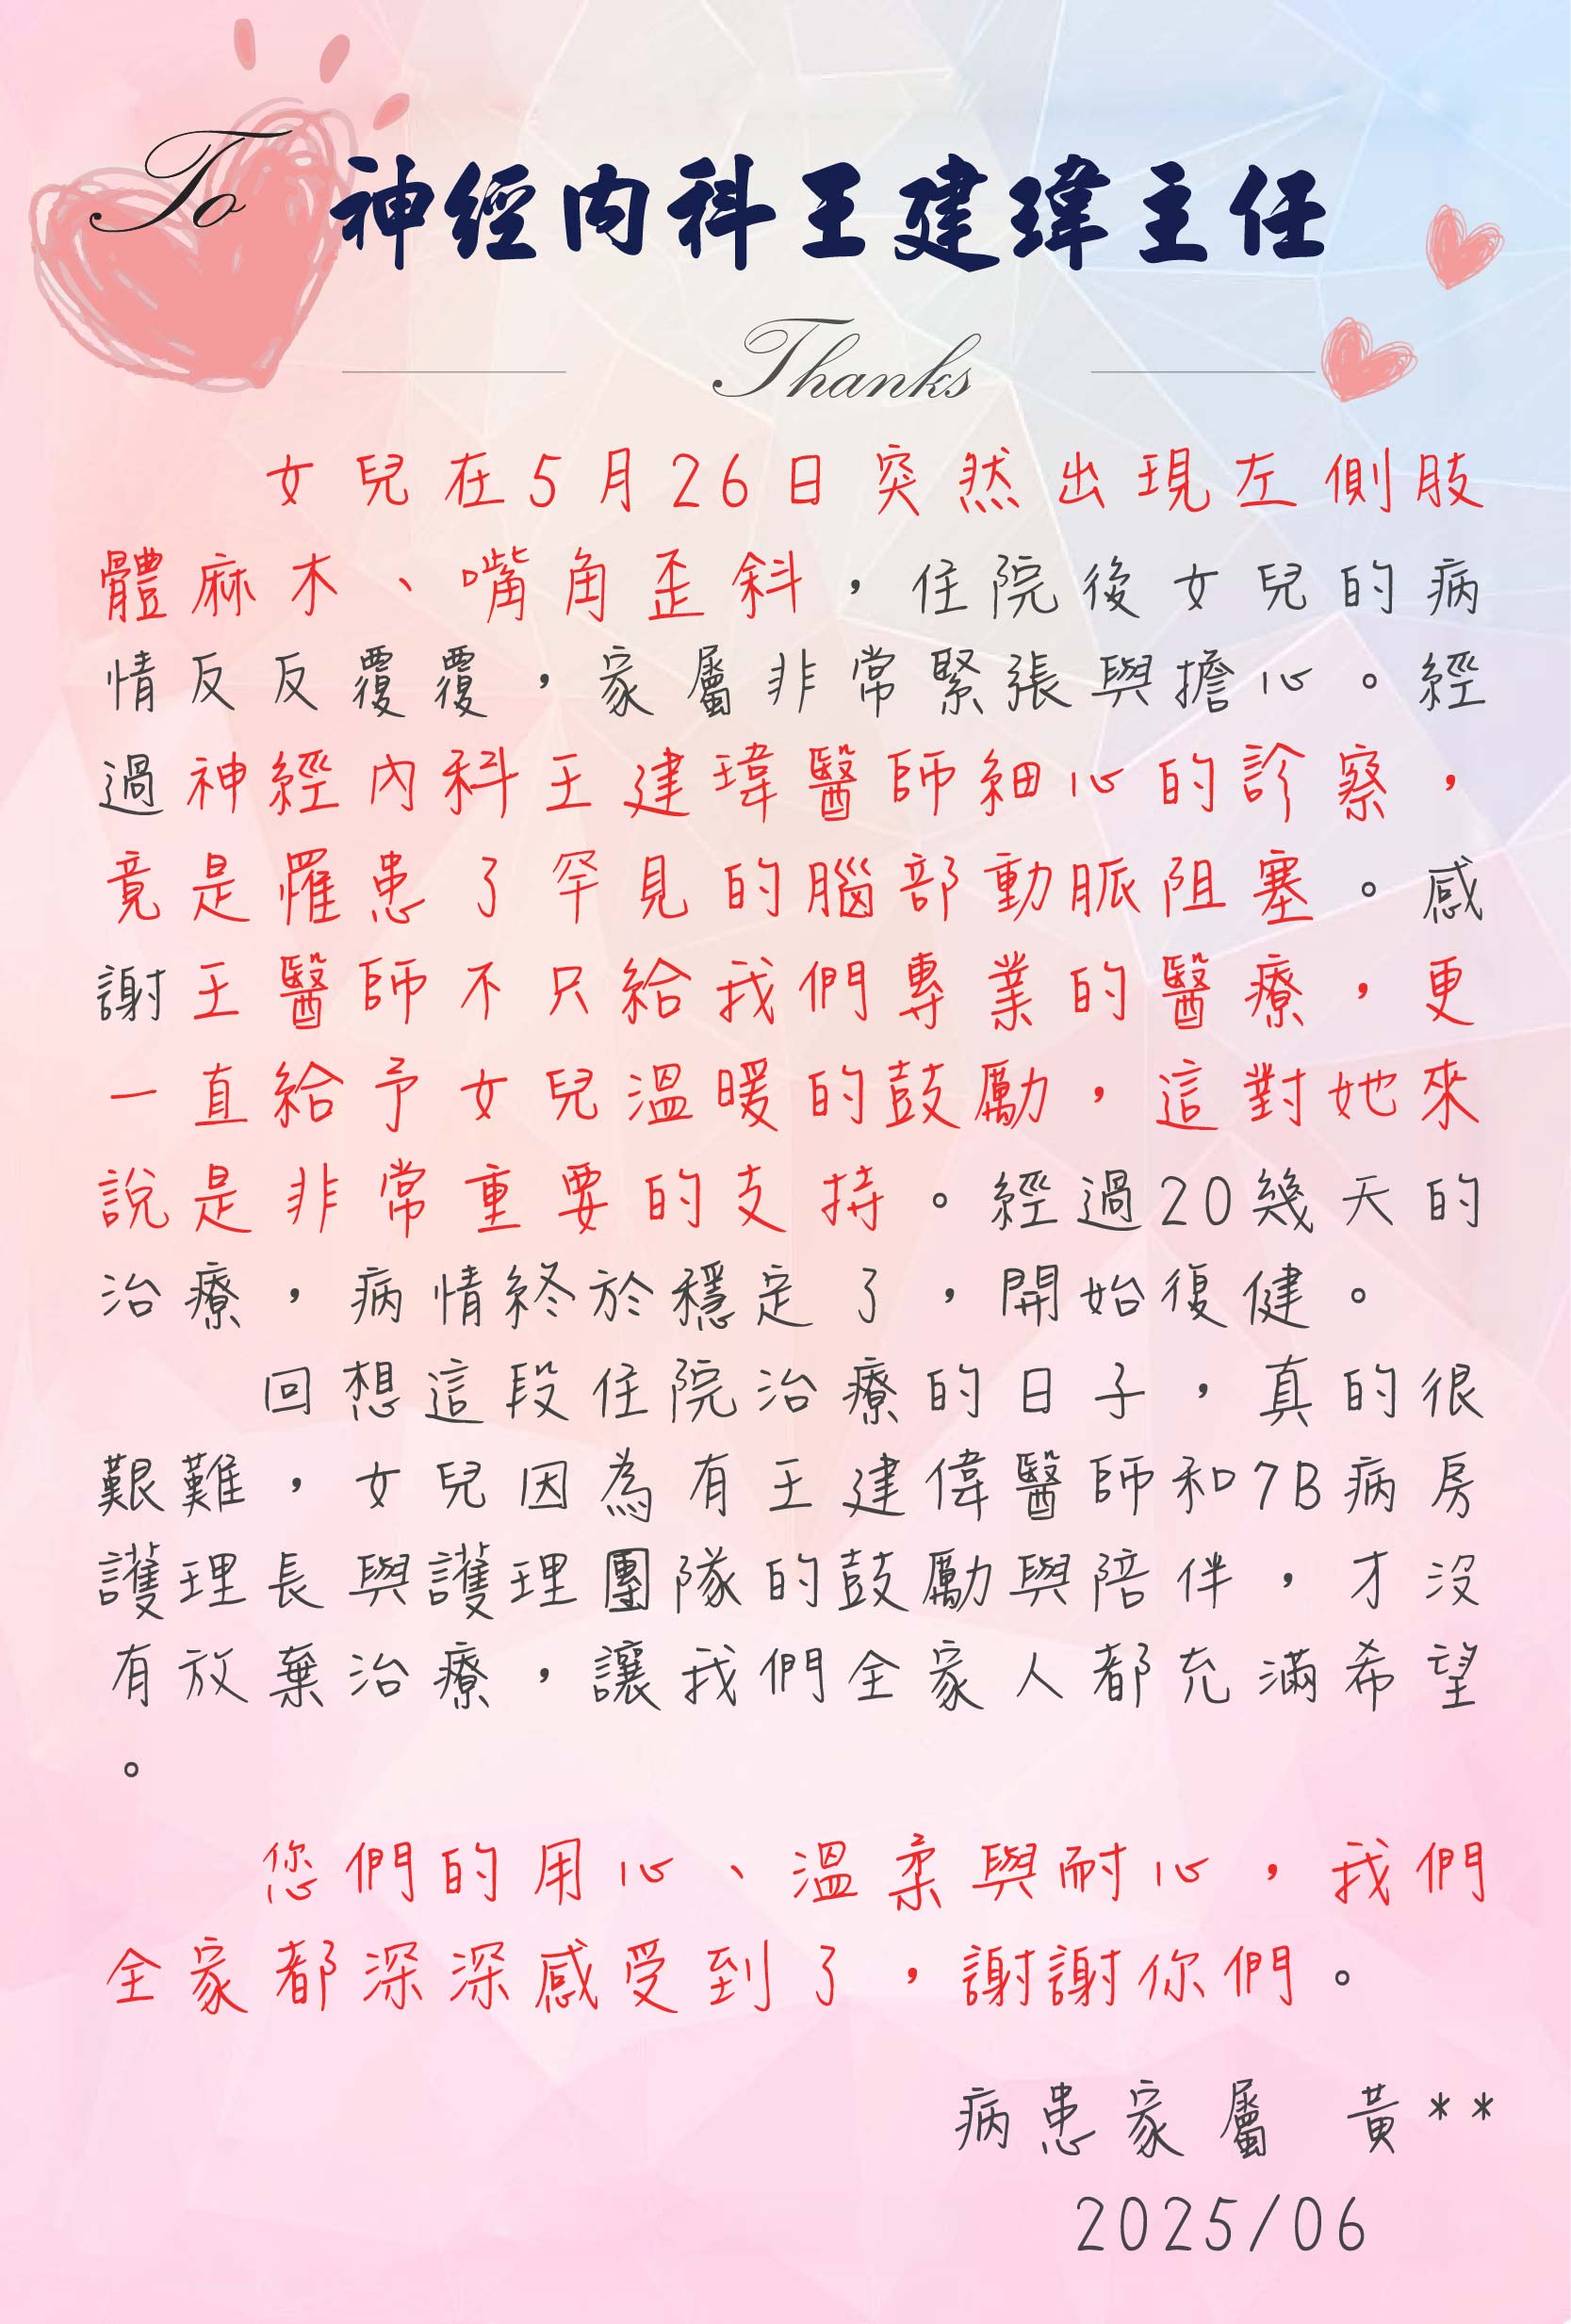 To 神經內科王建瑋主任
Thanks
女兒在5月26日突然出現左側肢
體麻木、嘴角歪斜，住院後女兒的病
情反反覆覆，家屬非常緊張與擔心。經
過神經內科王建瑋醫師細心的診察，
竟是罹患了罕見的腦部動脈阻塞。感
謝王醫師不只給我們專業的醫療，更
一直給予女兒溫暖的鼓勵，這對她來
說是非常重要的支持。經過20幾天的
治療，病情終於穩定了，開始復健。
回想這段住院治療的日子，真的很
艱難，女兒因為有王建偉醫師和7B病房
護理長與護理團隊的鼓勵與陪伴，才沒
有放棄治療，讓我們全家人都充滿希望
。
您們的用心、溫柔與耐心，我們
全家都深深感受到了，謝謝你們。
病患家屬 黃**
2025/06